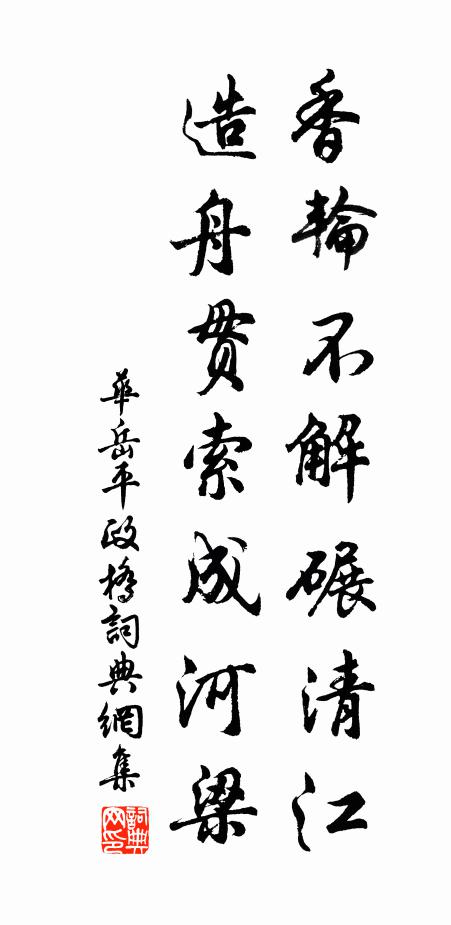 香輪不解碾清江
造舟貫索成河梁
華岳平政橋詞典網集
詞典
网印